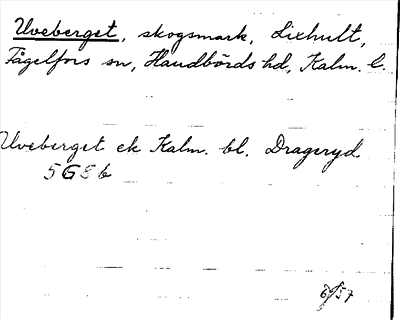 Uveberget, skogsmark, Lixhult,
Fågelfors sn, Handbörds hd, Kalm. l.
Uveberget ek Kalm. bl. Drageryd
5G8b